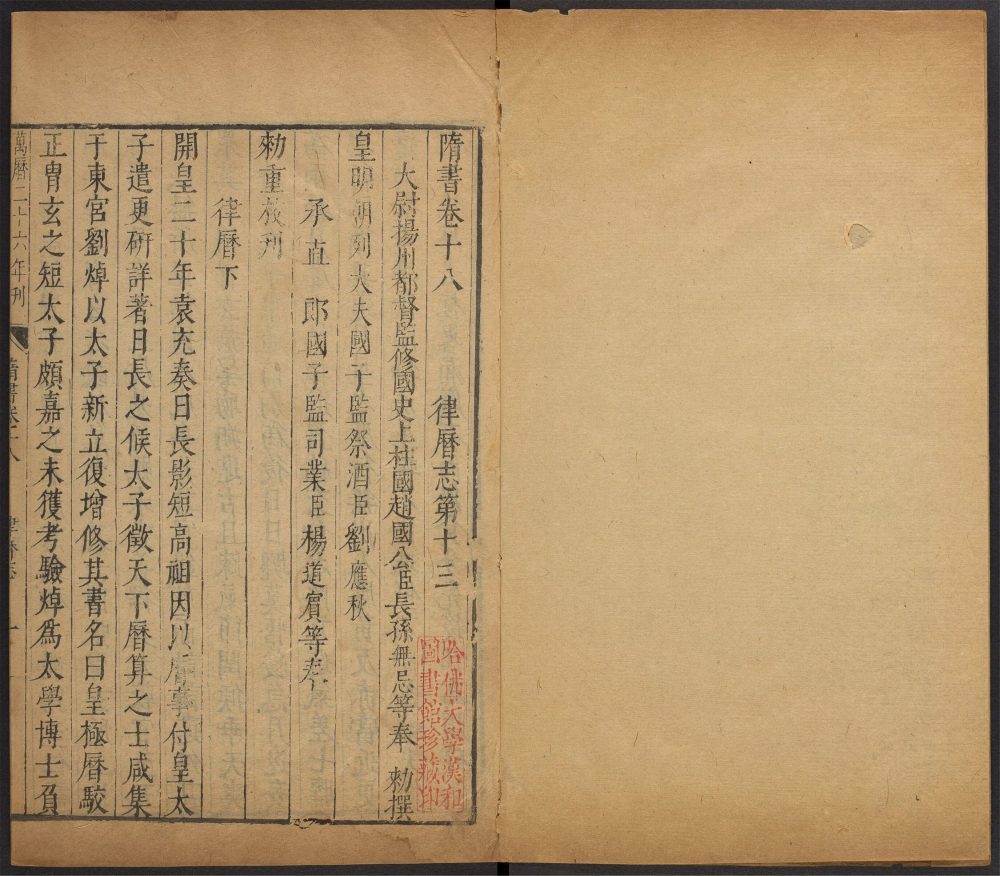 隋書卷十八 律曆志第十三
大尉揚州都督監修國史上柱國趙國公臣長孫無忌等奉 勑撰
皇明朝列大夫國子監祭酒臣劉應秋
承直 郎國子監司業臣楊道賓等奉
勑重校刊
律曆下
開皇二十年袁充奏日長影短高祖因以曆事付皇太
子遣更研詳著日長之候太子徵天下曆算之士咸集
于東宮劉焯以太子新立復增修其書名曰皇極曆駮
正胄玄之短太子頗嘉之未獲考驗焯爲太學博士負
萬曆二十六年刊 隋書卷十八 律曆志 一
哈佛大學漢和
圖書館珍藏印